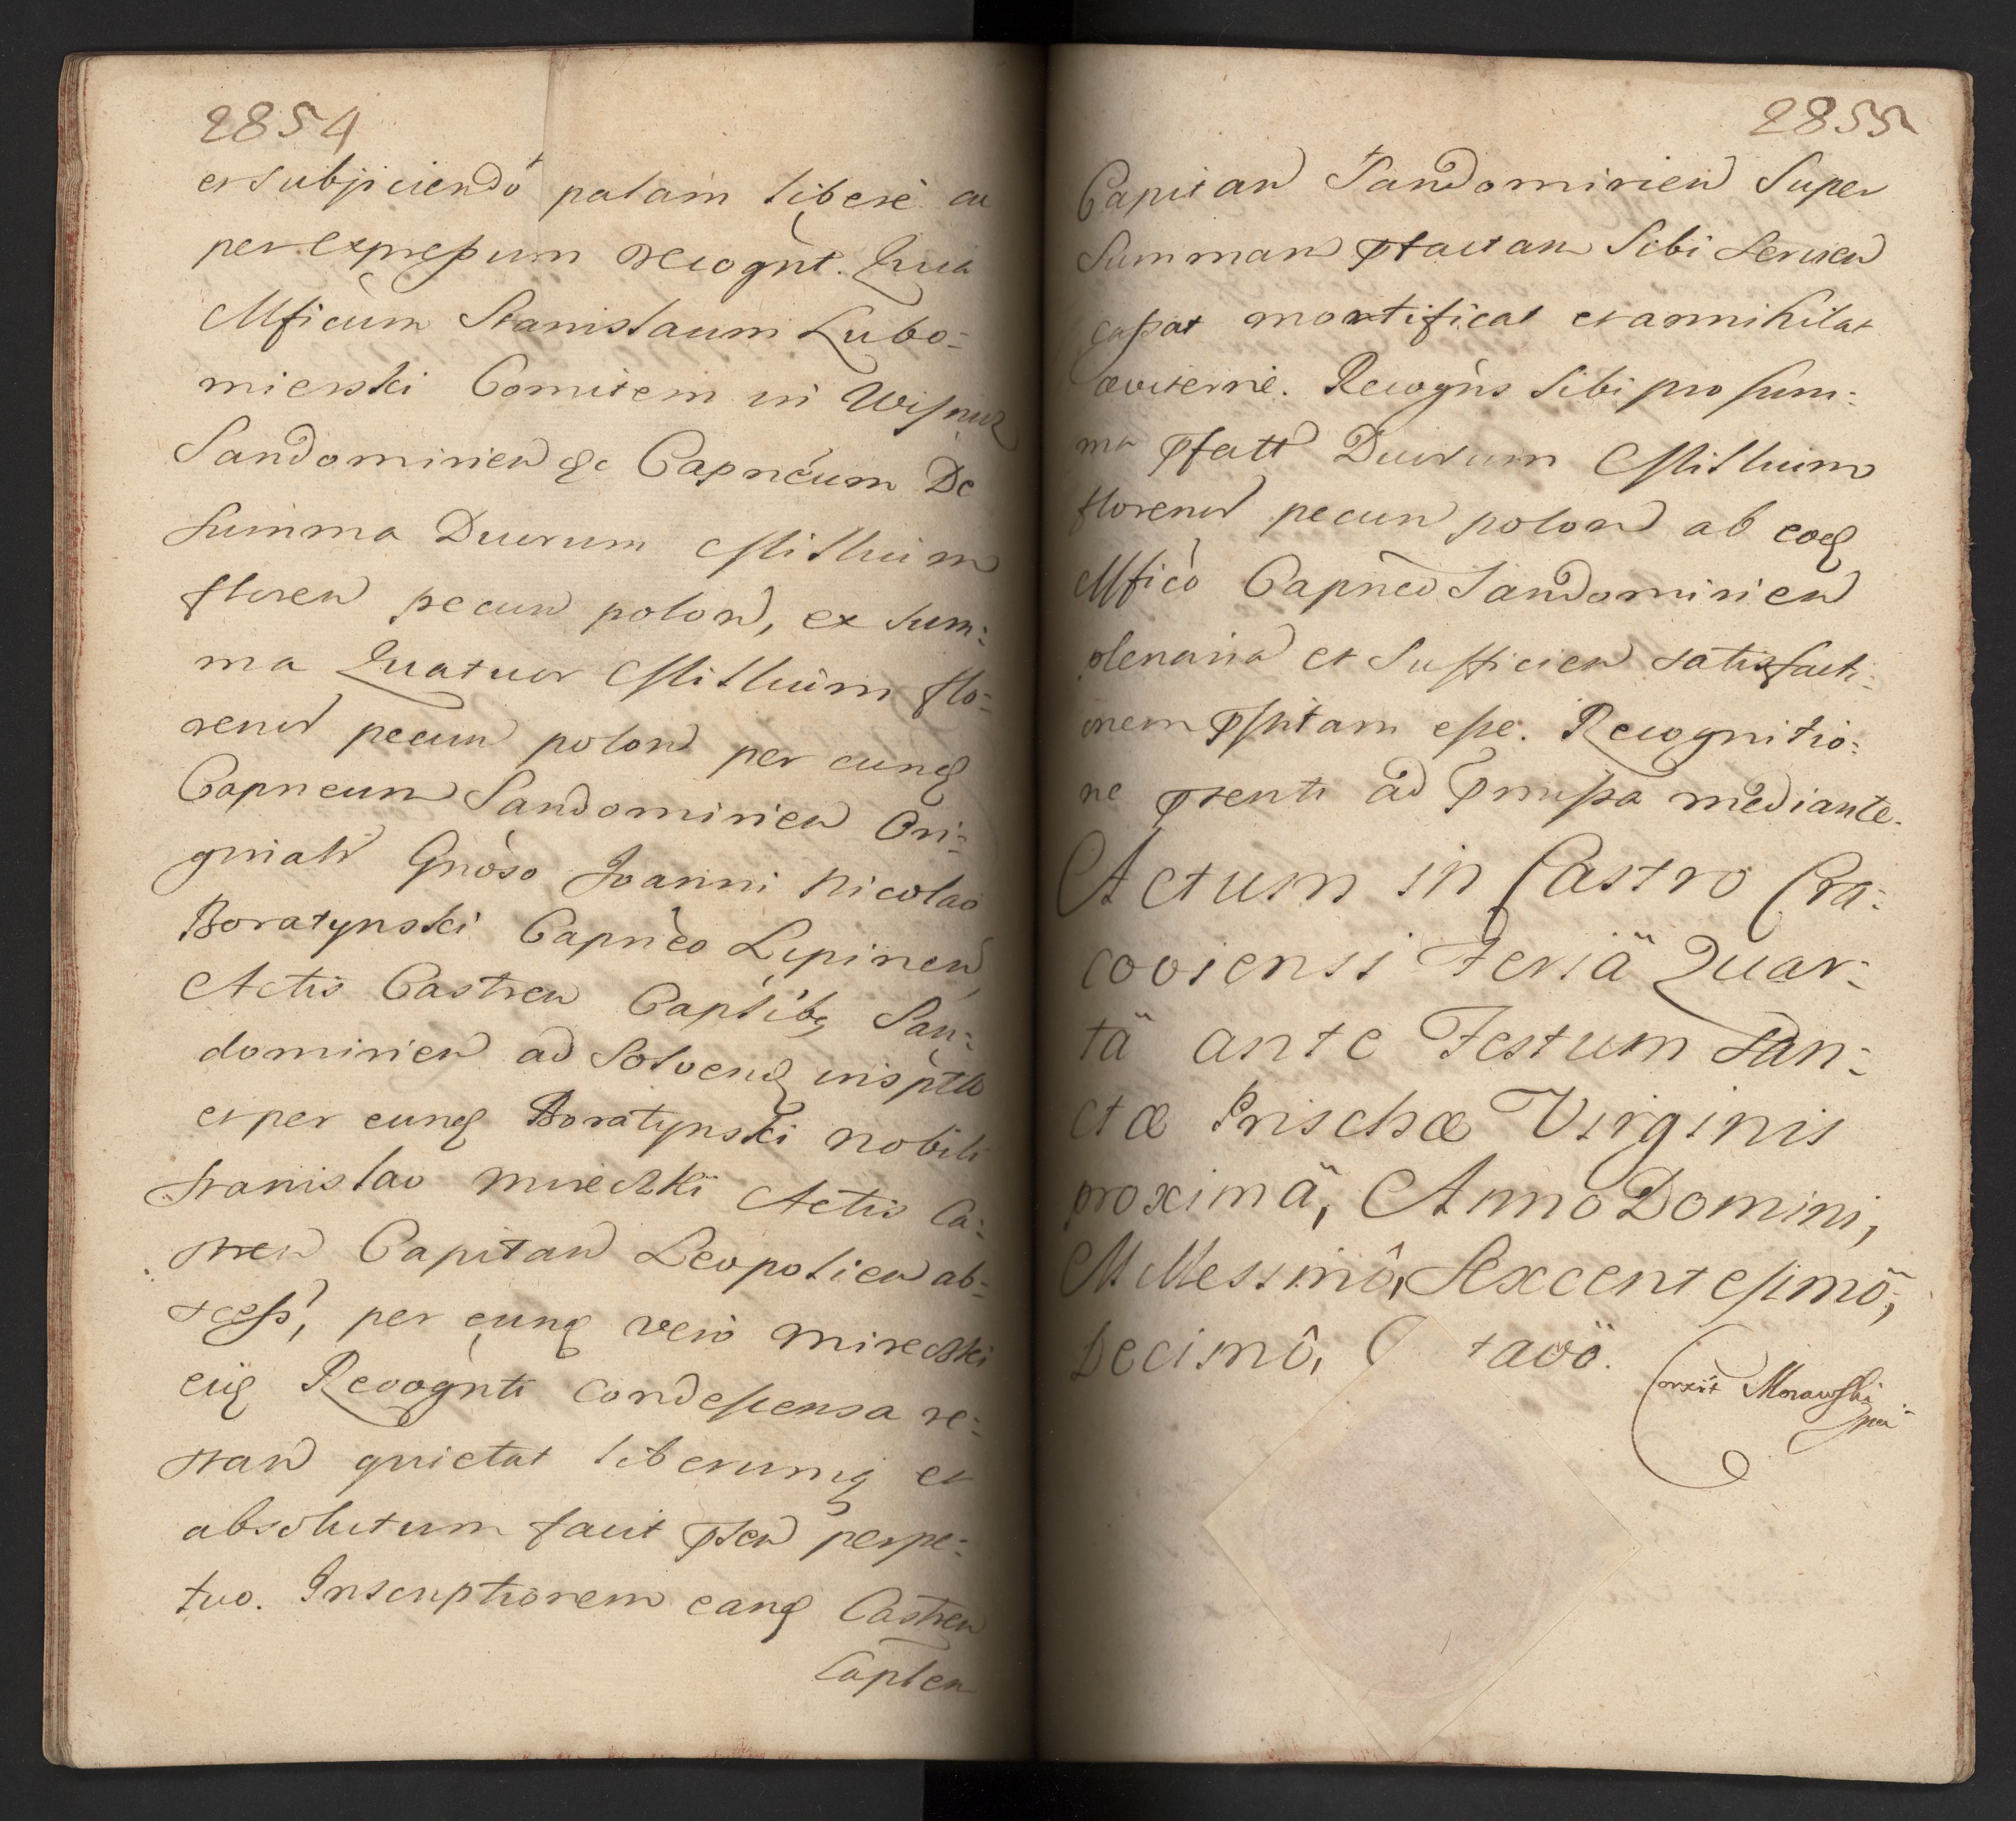 2854
et subjiciendo palam libere ac
per expressum recognt. Quia
Mficum Stanislaum Lubo=
mierski Comitem in Wisnicz
Sandomirien &c Capneum De
Summa Duorum Millium
floren pecun polon, ex sum:
ma Quatuor Millium flo=
renor pecun polon per eunq
Capneum Sandomirien Ori:
ginalr Gnoso Joanni Nicolao
Boratynski Capneo Lipinen
Actis Castren Capłibq San:
domirien ad Solvend inscptto
et per eunq Boratynski Nobili
Stanislao Mireczki Actis Ca:
stren Capitan Leopolien ab=
scess, per eunq vero Mireczki
eiq Recognti condescensa re:
stan quietat liberumq et
absolutum facit psen perpe:
tuo. Inscriptionem eanq Castren
Caplen
2855
Capitan Sandomirien Super
Summam pfactam Sibi servien
cassat mortificat et annihilat
aeviterne. Recogns Sibi pro sum:
ma pfatt Duorum Millium
florenor pecun polon ab eoq
Mfico Capneo Sandomirien
plenaria et Sufficien satisfacti:
onem pstitam esse. Recognitio:
ne psenti ad pmissa mediante.
Actum in Castro Cra:
coviensi Feria Quar:
ta ante Festum San:
ctæ Prischæ Virginis
proximä, Anno Domini,
Millessimô, Sexcentesimô,
Decimô, O tavö.
Corrxit Morawski
mp